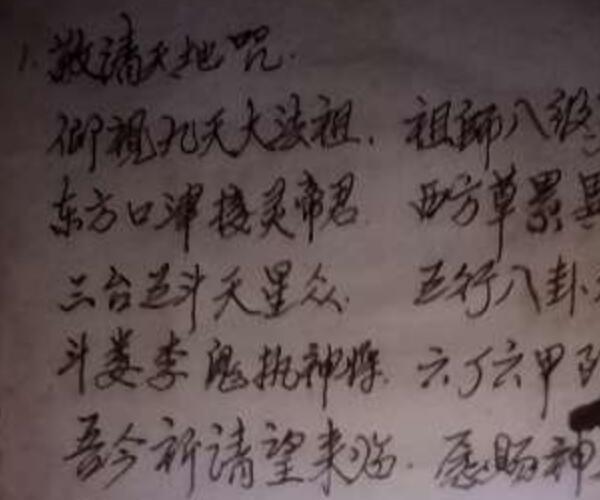 1. 敬请天地咒.
仰视九天大法祖. 祖师八级
东方口津接灵帝君 西方草累
三台五斗天星众. 五行八卦
斗娄李鬼执神将. 六丁六甲
吾今祈请望来临. 愿赐神